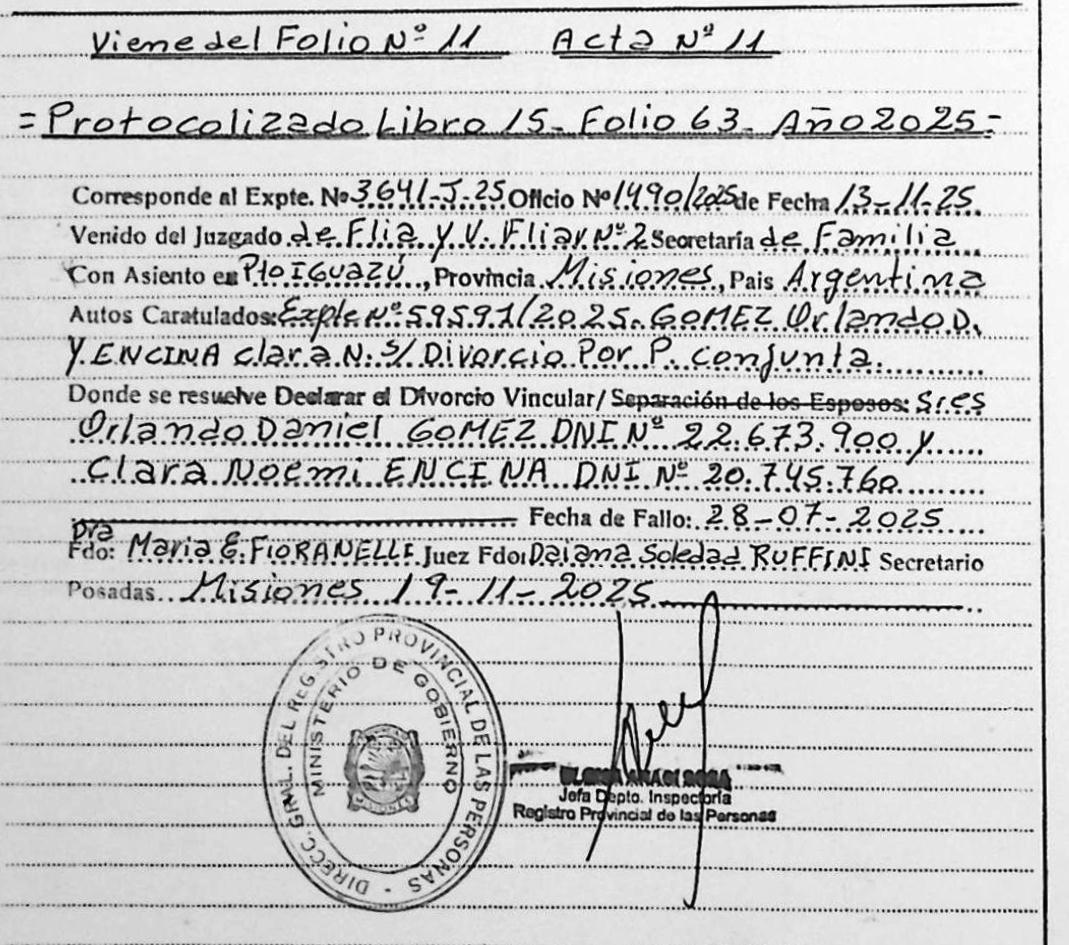 Viene del Folio Nº 11 Acta Nº 11
= Protocolizado Libro 15- Folio 63- Año 2025=
Corresponde al Expte. Nº 3641-J-25 Oficio Nº 1490/2025 de Fecha 13-11-25
Venido del Juzgado de Flia y V. Fliar Nº 2 Secretaría de Familia
Con Asiento en Pto IGuazú, Provincia Misiones, Pais Argentina
Autos Caratulados: Expte Nº 59591/2025- GOMEZ Orlando D.
Y ENCINA Clara N. S/ Divorcio Por P. conjunta.
Donde se resuelve Declarar el Divorcio Vincular/ Separación de los Esposos: Sres
Orlando Daniel GOMEZ DNI Nº 22.673.900 y
Clara Noemi ENCINA DNI Nº 20.745.760
Fecha de Fallo: 28-07-2025
Dra
Fdo: Maria E. FIORANELLI Juez Fdo: Daiana Soledad RUFFINI Secretario
Posadas Misiones 19-11-2025
DIRECC. GRAL. DEL REGISTRO PROVINCIAL DE LAS PERSONAS -
MINISTERIO DE GOBIERNO
Jefa Depto. Inspectoría
Registro Provincial de las Personas